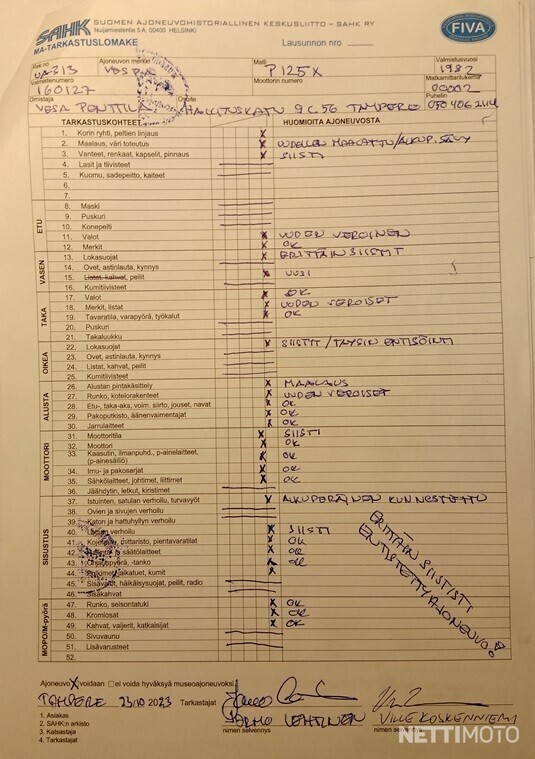 SAHK
SUOMEN AJONEUVOHISTORIALLINEN KESKUSLIITTO - SAHK RY
Nuijamiestentie 5A, 00400 HELSINKI
FIVA
MA-TARKASTUSLOMAKE
Lausunnon nro:
Rek no
Ajoneuvon merkki
Malli
Valmistusvuosi
UA-313
VESPA
P125X
1982
Valmistenumero
Moottorin numero
Matkamittarilukema
160127
00002
Omistaja
Osoite
Puhelin
VESA PENTTILÄ HALLITUSKATU 9 C 56 TAMPERE
TARKASTUSKOHTEET
HUOMIOITA AJONEUVOSTA
1. Korin ryhti, peltien linjaus X
2. Maalaus, väri toteutus X UUDELLEEN MAALATTU/ALKUP. SÄVY
3. Vanteet, renkaat, kapselit, pinnaus X SIISTI
4. Lasit ja tiivisteet
5. Kuomu, sadepeitto, kaiteet
6.
7.
ETU
8. Maski
9. Puskuri
10. Konepelti
11. Valot X UUDEN VEROINEN
12. Merkit X OK
VASEN
13. Lokasuojat X ERITTÄIN SIISTIT
14. Ovet, astinlauta, kynnys
15. Listat, kahvat, peilit X UUSI
16. Kumitiivisteet
TAKA
17. Valot X OK
18. Merkit, listat X UUDEN VEROISET
19. Tavaratila, varapyörä, työkalut X OK
20. Puskuri
21. Takaluukku
OIKEA
22. Lokasuojat X SIISTIT / TÄYSIN ENTISÖINTI
23. Ovet, astinlauta, kynnys
24. Listat, kahvat, peilit
25. Kumitiivisteet
ALUSTA
26. Alustan pintakäsittely X MAALAUS
27. Runko, kotelorakenteet X UUDEN VEROISET
28. Etu-, taka-aks, voim. siirto, jouset, navat X OK
29. Pakoputkisto, äänenvaimentajat X OK
30. Jarrulaitteet X OK
MOOTTORI
31. Moottoritila X SIISTI
32. Moottori X OK
33. Kaasutin, ilmanpuhd., p-ainelaitteet, (p-ainesäiliö) X OK
34. Imu- ja pakosarjat X OK
35. Sähkölaitteet, johtimet, liittimet X OK
36. Jäähdytin, letkut, kiristimet
SISUSTUS
37. Istuinten, satulan verhoilu, turvavyöt X ALKUPERÄINEN KUNNOSTETTU
38. Ovien ja sivujen verhoilu
39. Katon ja hattuhyllyn verhoilu
40. verhoilu X SIISTI
41. Kojetaulu, mittaristo, pientavaratilat X OK
42. säätölaitteet X OK
43. Ohjauspyörä, -tanko X OK
44. Polkimet, jalkatuet, kumit X
45. Sisävalot, häikäisysuojat, peilit, radio
46. Sisäkahvat
MOPO/M-pyörä
47. Runko, seisontatuki X OK
48. Kromiosat X OK
49. Kahvat, vaijerit, katkaisijat X OK
50. Sivuvaunu
51. Lisävarusteet
52.
ERITTÄIN SIISTISTI
ENTISTETTY AJONEUVO!
Ajoneuvo X voidaan ei voida hyväksyä museoajoneuvoksi
TAMPERE 23.10 2023 Tarkastajat
JARMO LEHTINEN VILLE KOSKENNIEMI
nimen selvennys nimen selvennys
1. Asiakas
2. SAHK:n arkisto
3. Katsastaja
4. Tarkastajat
NETTIMOTO